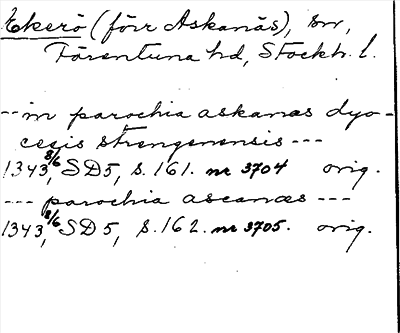 Ekerö (förr Askanäs), sn,
Färentuna hd, Stockh. l.
-- in parochia askanæs dyo-
cesis strengenensis ---
1343 8/6, SD 5, s. 161. nr 3704 orig.
--- parochia ascanæs ---
1343 8/6, SD 5, s. 162. nr 3705. orig.